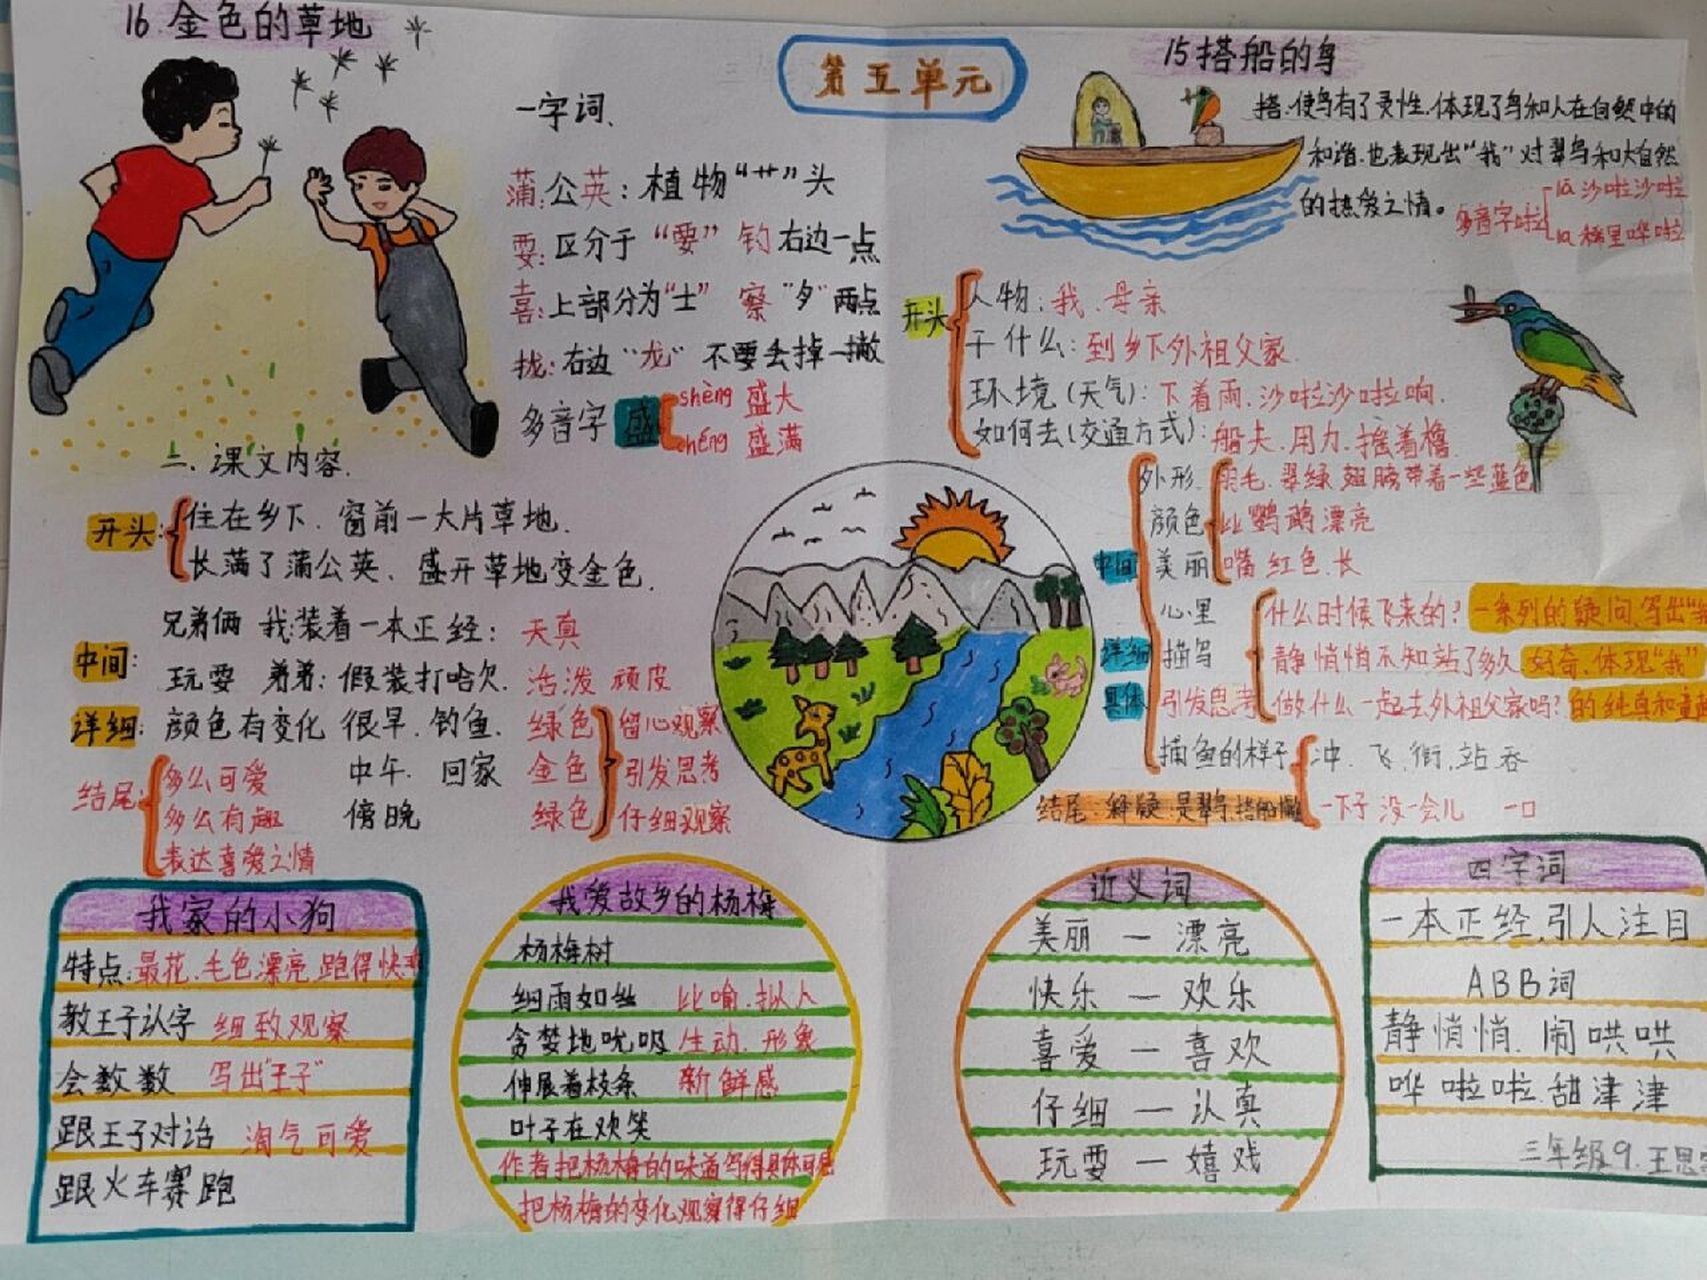 第五单元
16.金色的草地
一字词、
蒲:公英:植物“艹”头
耍:区分于“要” 钓右边一点
喜:上部分为“士” 察“夕”两点
拢:右边“龙”不要丢掉一撇
多音字 盛 shèng 盛大
chéng 盛满
二、课文内容.
开头: 住在乡下.窗前一大片草地.
长满了蒲公英、盛开草地变金色.
兄弟俩 我:装着一本正经: 天真
中间:
玩耍 着着: 假装打哈欠. 活泼 顽皮
详细: 颜色有变化 很早.钓鱼. 绿色 留心观察
中午. 回家 金色 引发思考
傍晚 绿色 仔细观察
结尾: 多么可爱
多么有趣
表达喜爱之情
15搭船的鸟
搭:使鸟有了灵性.体现了鸟和人在自然中的
和谐.也表现出“我”对翠鸟和大自然
的热爱之情。
多音字啦 lā 沙啦沙啦
la 稀里哗啦
开头 人物:我.母亲
干什么:到乡下外祖父家.
环境(天气):下着雨.沙啦沙啦响.
如何去(交通方式):船夫.用力.摇着橹.
外形. 羽毛.翠绿 翅膀带着一些蓝色
颜色 比鹦鹉漂亮
中间 美丽 嘴 红色.长
心里 什么时候飞来的? 一系列的疑问.写出
详细 描写 静悄悄不知站了多久. 好奇、体现“我”
具体 引发思考 做什么一起去外祖父家吗? 的纯真和童
捕鱼的样子 冲.飞.衔.站 吞
一下子 没一会儿 一口
结尾:释疑:是翠鸟.搭船
我家的小狗
特点:最花.毛色漂亮.跑得快
教王子认字 细致观察
会数数 写出“王子”
跟王子对话 淘气可爱
跟火车赛跑
我爱故乡的杨梅
杨梅树
细雨如丝 比喻.拟人
贪婪地吮吸 生动.形象
伸展着枝条 新鲜感
叶子在欢笑
作者把杨梅的味道写得具体可感
把杨梅的变化观察得仔细
近义词
美丽 — 漂亮
快乐 — 欢乐
喜爱 — 喜欢
仔细 — 认真
玩耍 — 嬉戏
四字词
一本正经.引人注目
ABB词
静悄悄.闹哄哄
哗啦啦.甜津津
三年级9.王思